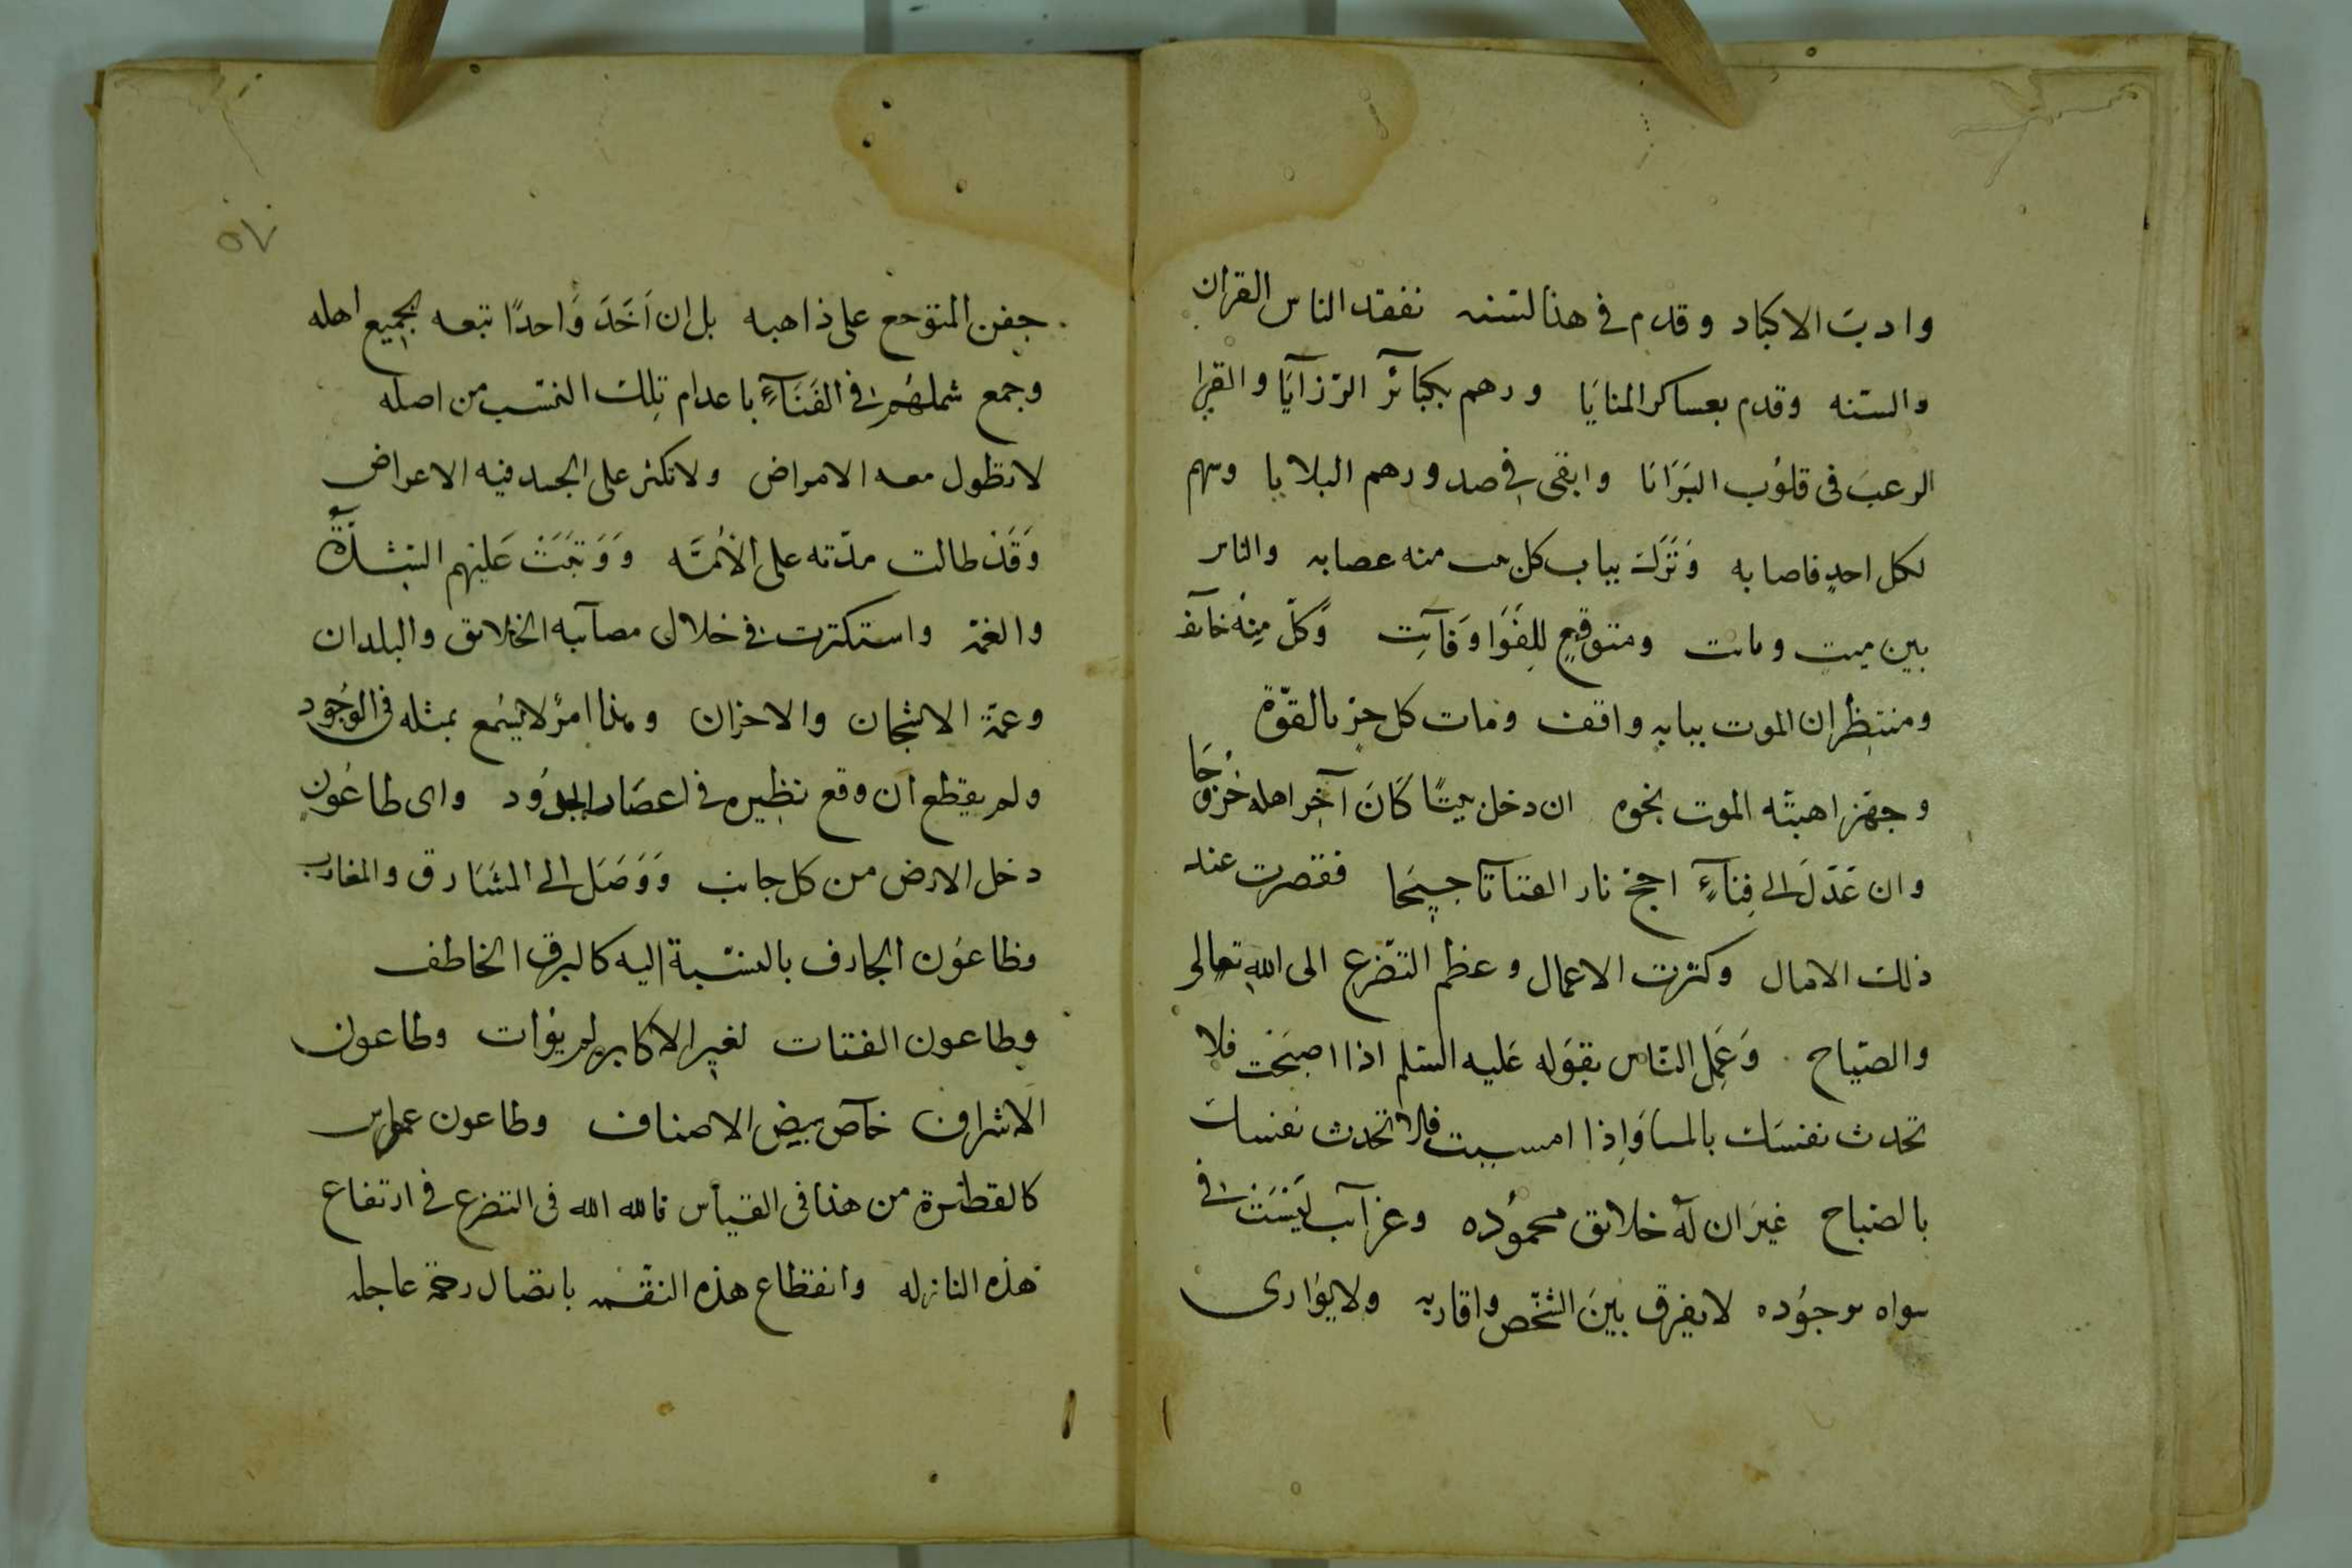 وادبت الاكباد وقدم فى هذا لسنه نفقد الناس القران
والسنه وقدم بعساكر المنايا ورهم بكبائر الرزآيا والقى
الرعب فى قلوب البرانا وابقى فى صدورهم البلايا وسهم
لكل احد فاصابه ونزلت بباب كل منه عصابه والناس
بين ميت ومائت ومتوقع للفوا وفآيت وكل منه خآئف
ومنتظر ان الموت ببابه واقف ومات كل حز بالقوة
وجهز اهبته الموت نحوه ان دخل بيتًا كان آخر اهله خروجا
وان عدل الى فنآءٍ اجج نار الفتاتا جيحا فقصرت عند
ذلك الامال وكثرت الاعمال وعظم التضرع الى الله تعالى
والصياح وعمل الناس بقوله عليه السلم اذا اصبحت فلا
تحدث نفسك بالمسا واذا امسيت فلا تحدث نفسك
بالصباح غير ان له خلايق محموده وغرآيب ليست فى
سواه موجوده لا يفرق بين الشخص واقاربه ولا يوارى
٥٧
جفن المتوجع على ذاهبه بل ان اخذ واحدًا تبعه بجميع اهله
وجمع شملهم فى الفنآءٍ باعدام تلك النسب من اصله
لا تطول معه الامراض ولا تكثر على الجسد فيه الاعراض
وقد طالت مدته على الأمه ووتجت عليهم الشدة
والغمة واستكثرت فى خلال مصآئبه الخلايق والبلدان
وعمة الاشجان والاحزان وهذا امرٌ لا يسمع بمثله فى الوجود
ولم يقطع ان وقع نظيره فى اعصار الجدود واى طاعون
دخل الارض من كل جانب ووصل الى المشارق والمغارب
وطاعون الجارف بالنسبة اليه كالبرق الخاطف
وطاعون الفتيات لغير الاكابر لم يوات وطاعون
الاشراف خآص ببعض الاصناف وطاعون عمواس
كالقطرة من هذا فى القياس فالله الله فى التضرع فى ارتفاع
هذه النازله وانقطاع هذه النقمه باتصال رحمة عاجله